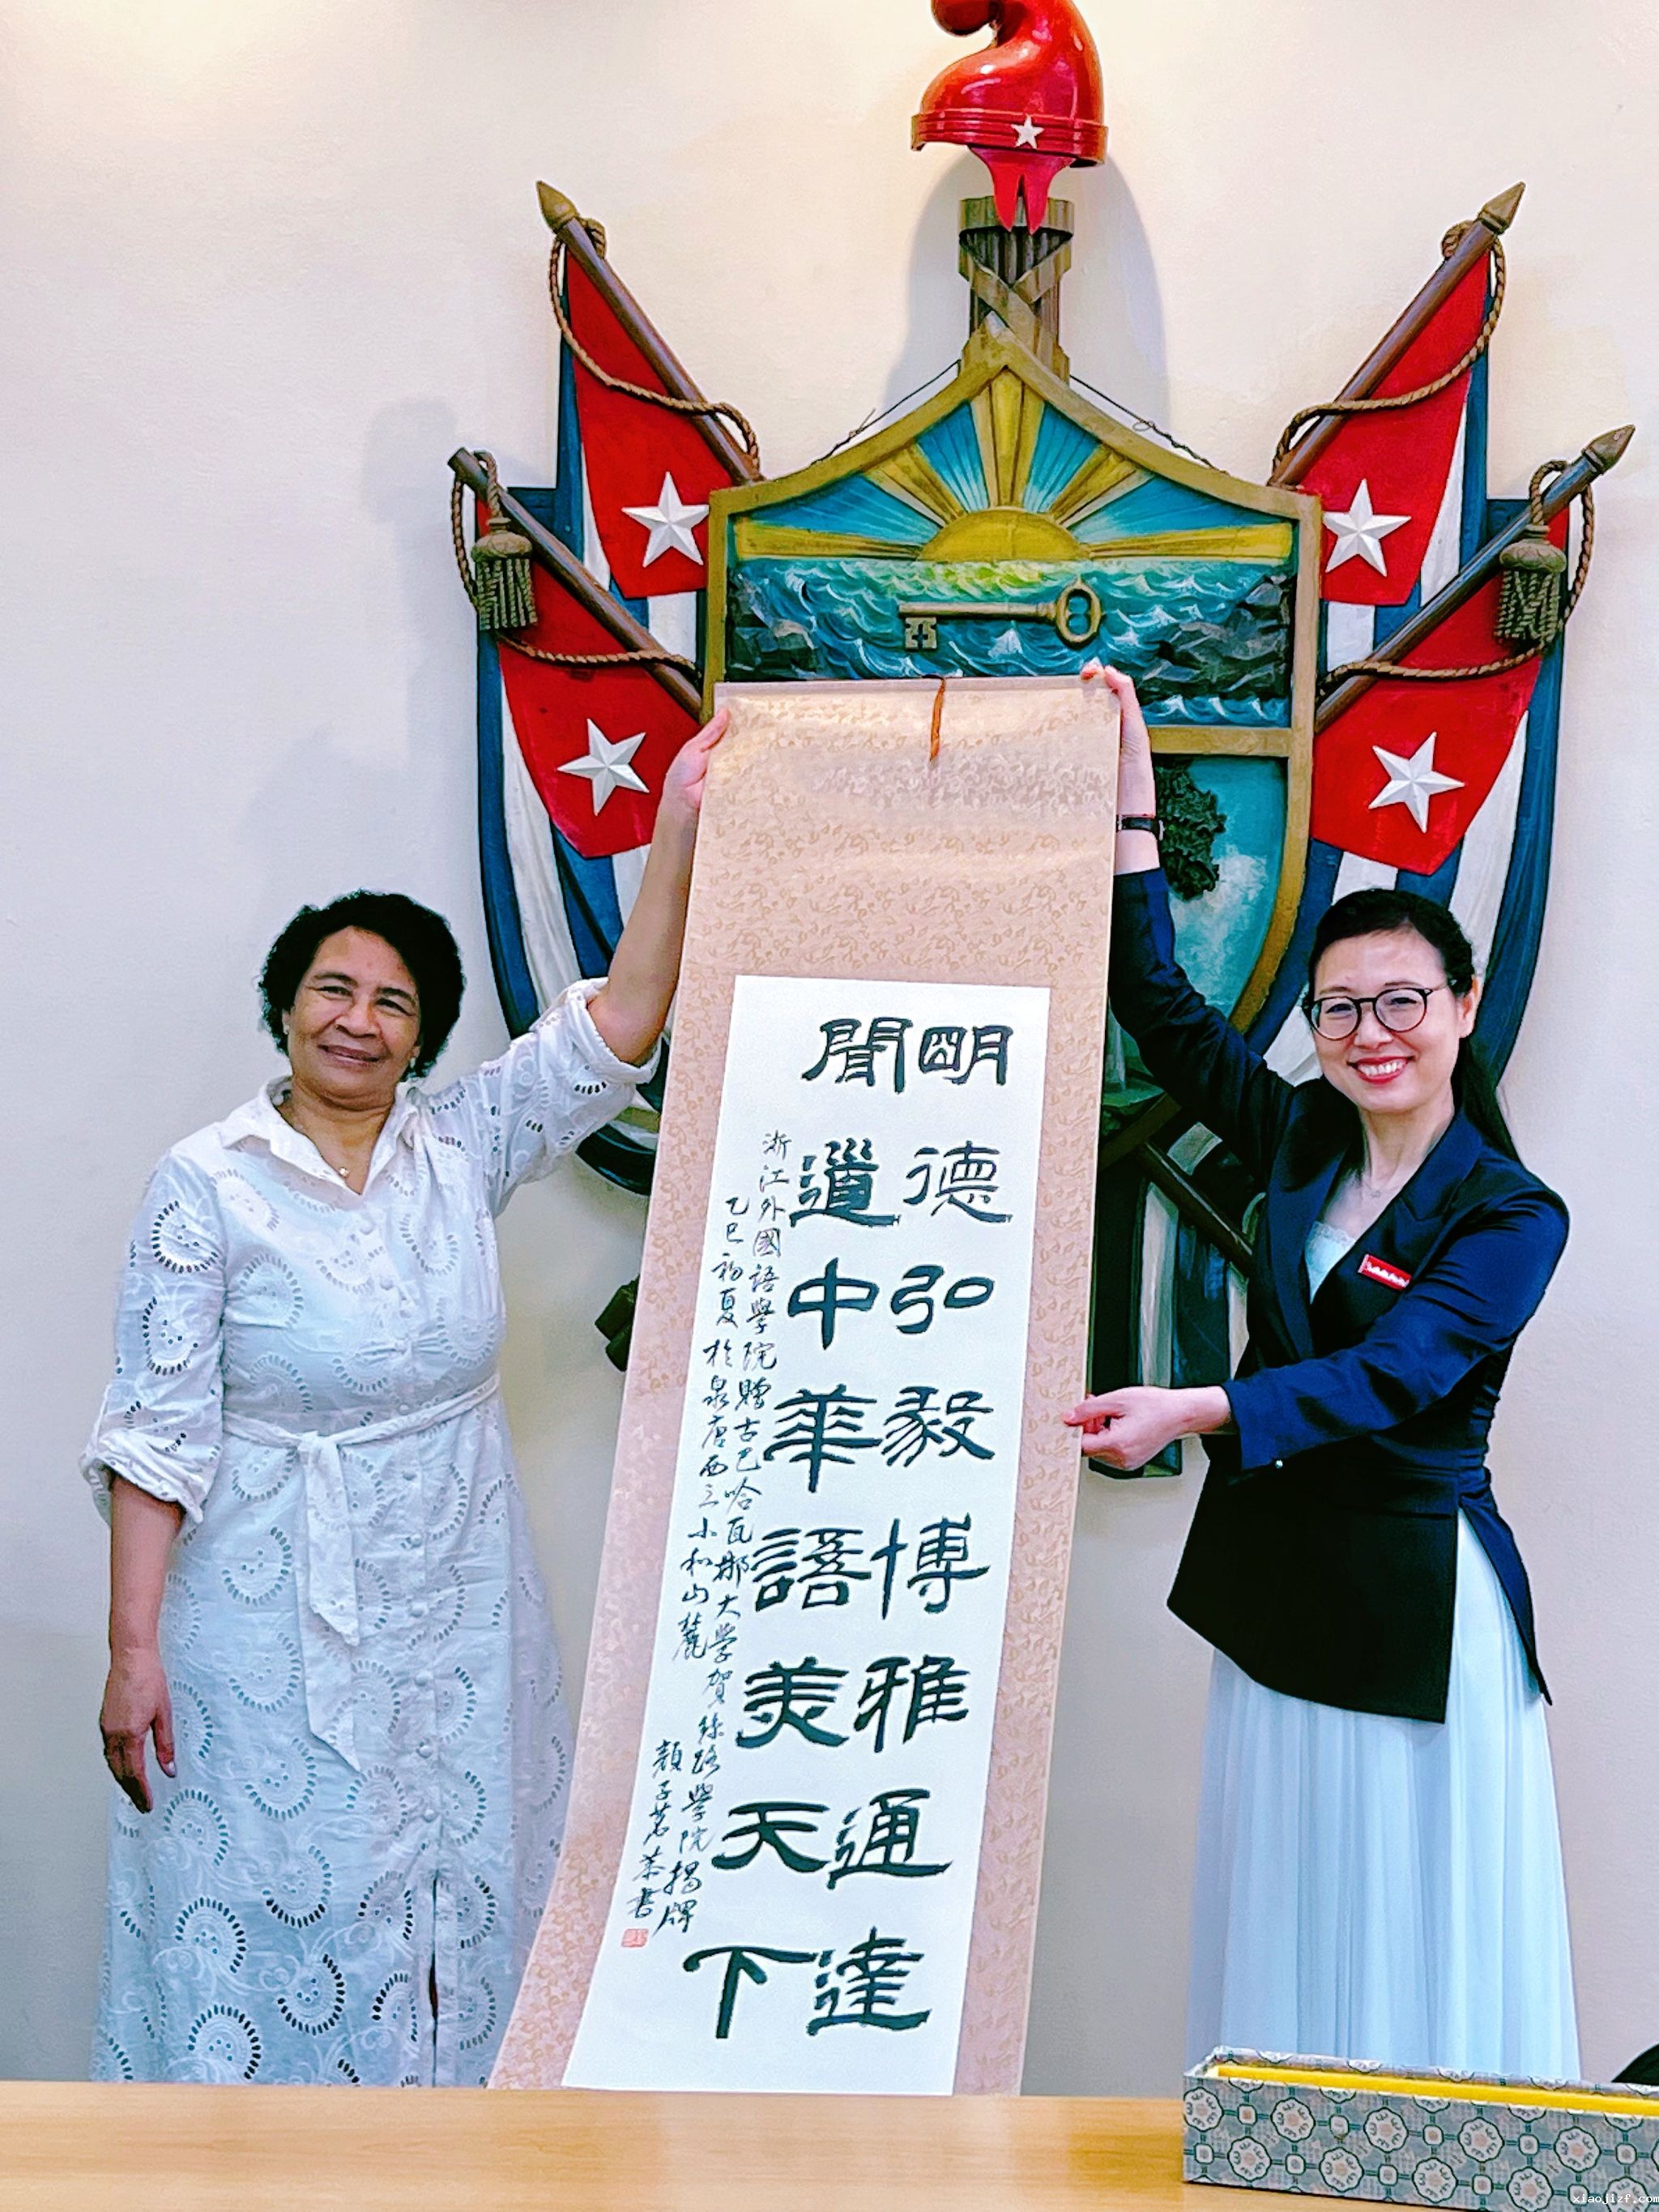 明德弘毅博雅通達
聞道中華語美天下
浙江外國語學院贈古巴哈瓦那大學賀絲路學院揭牌
乙巳初夏於泉唐西三小和山麓
顏子茗恭書
xiaojlzf.com